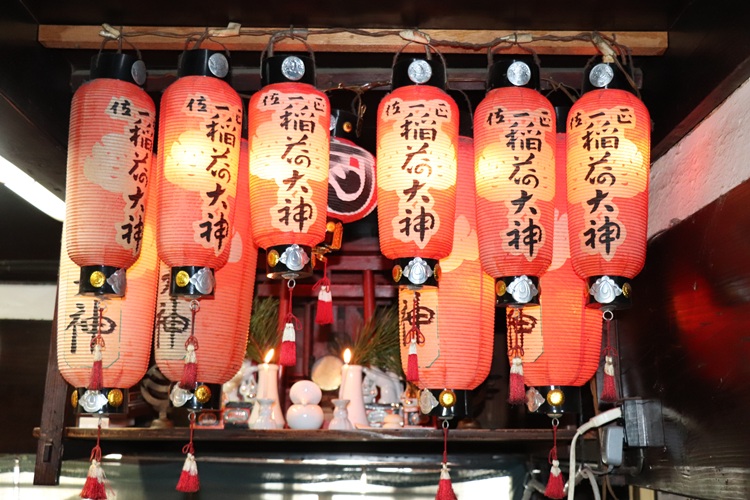 正一位
稲荷大神
正一位
稲荷大神
正一位
稲荷大神
正一位
稲荷大神
正一位
稲荷大神
正一位
稲荷大神
神
神
神
神